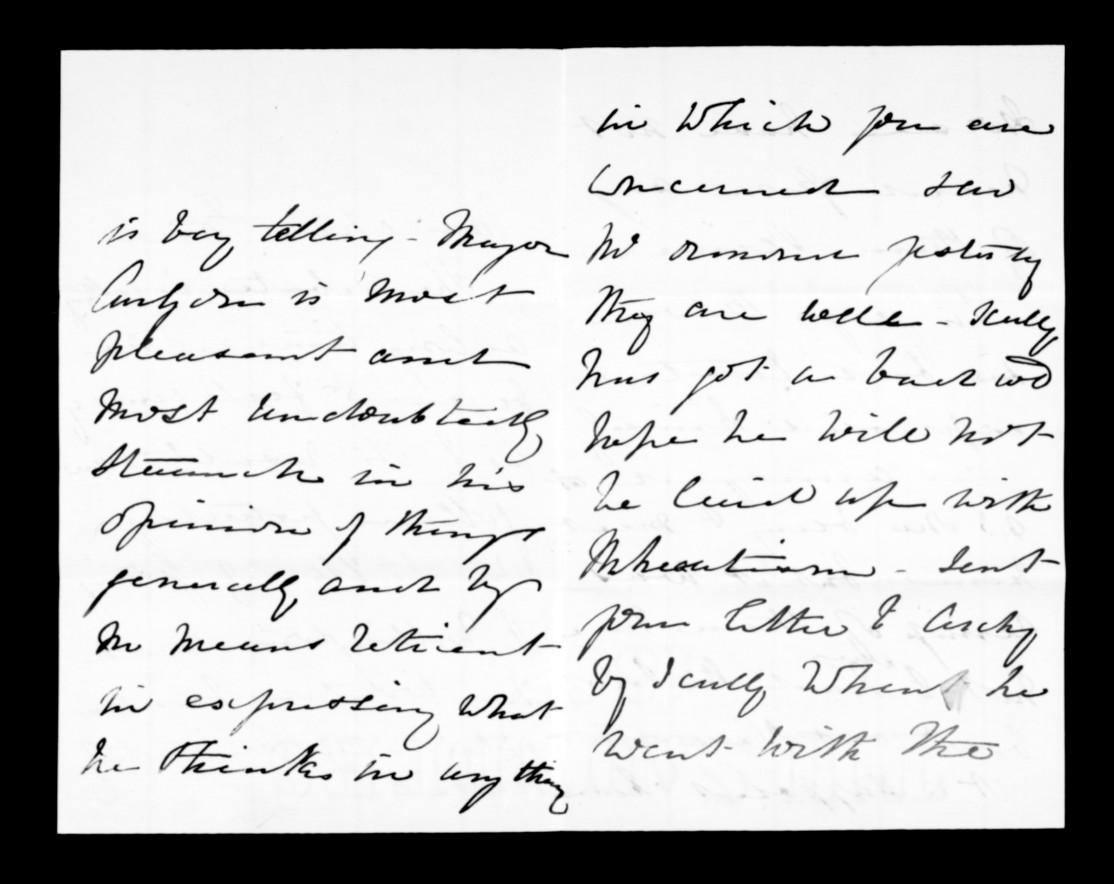 is very telling - Major
is most
pleasant and
most undoubtedly
staunch in his
opinion of things
generally and by
no means reticent
in expressing what
he thinks in any thing
in which you are
concerned saw
Mr Ormond yesterday
they are well - Scully
has got a bad cold
hope he will not
be laid up with
Rheumatism - Sent
your letter to Archy
by Scully when he
went with the